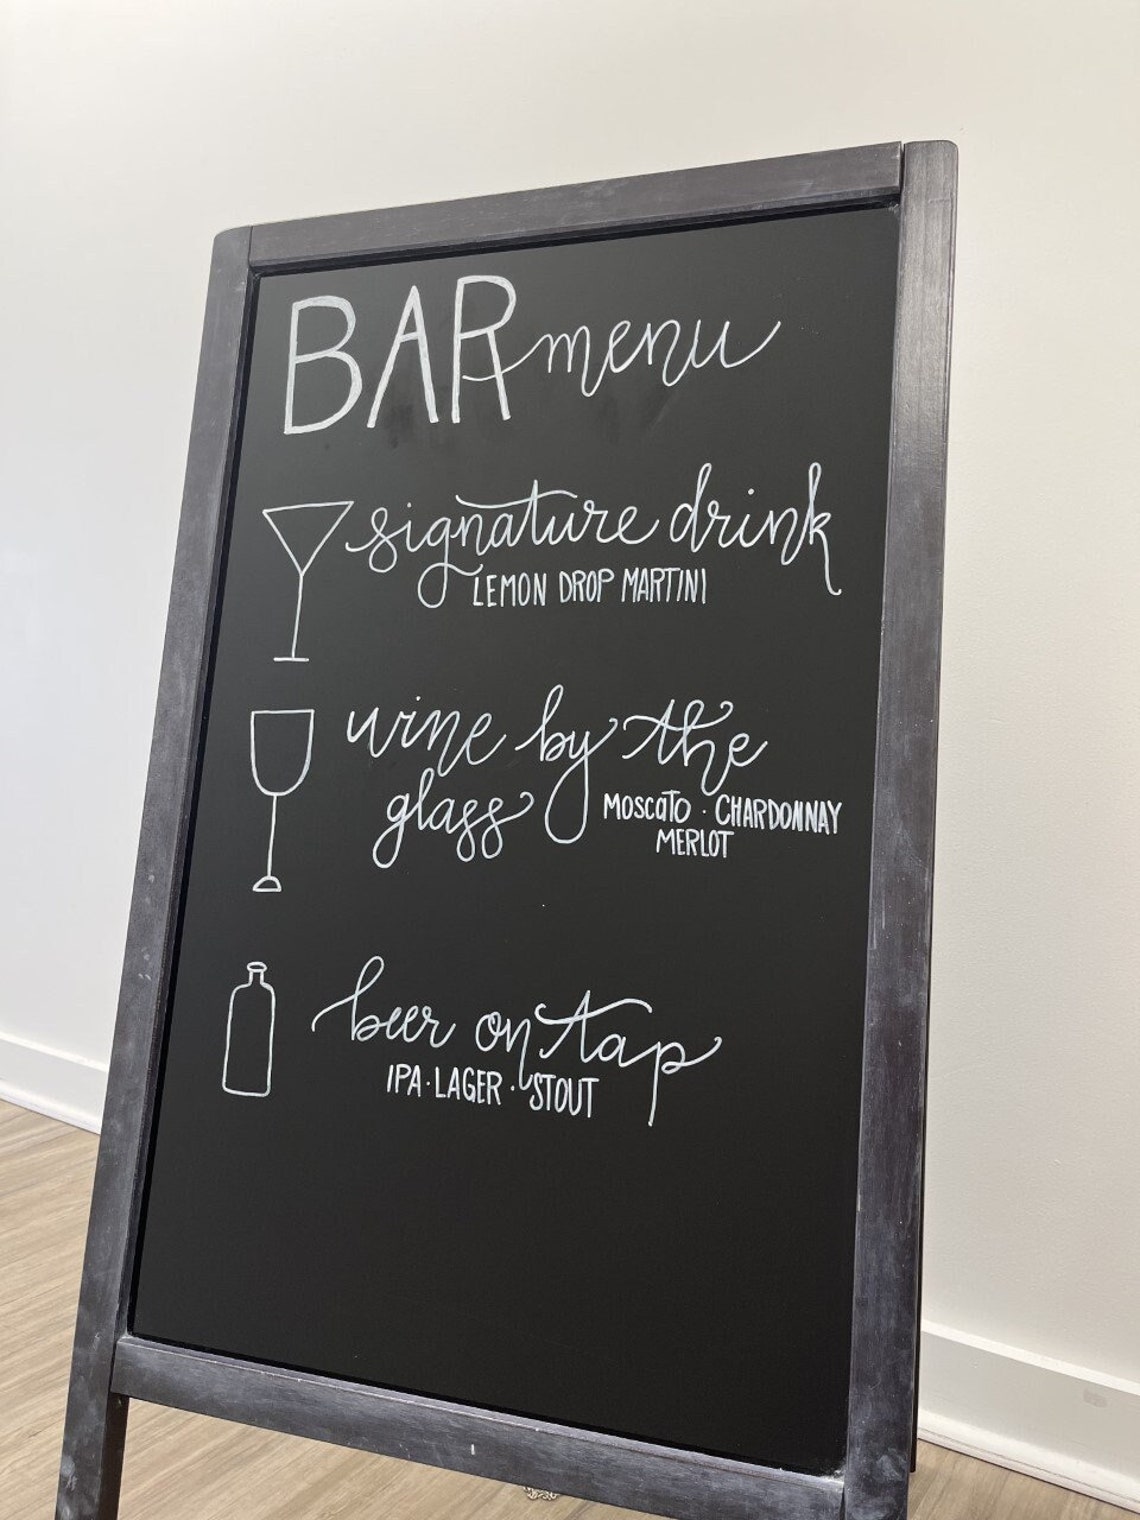 BAR menu
signature drink
LEMON DROP MARTINI
wine by the
glass
MOSCATO · CHARDONNAY
MERLOT
beer on tap
IPA · LAGER · STOUT